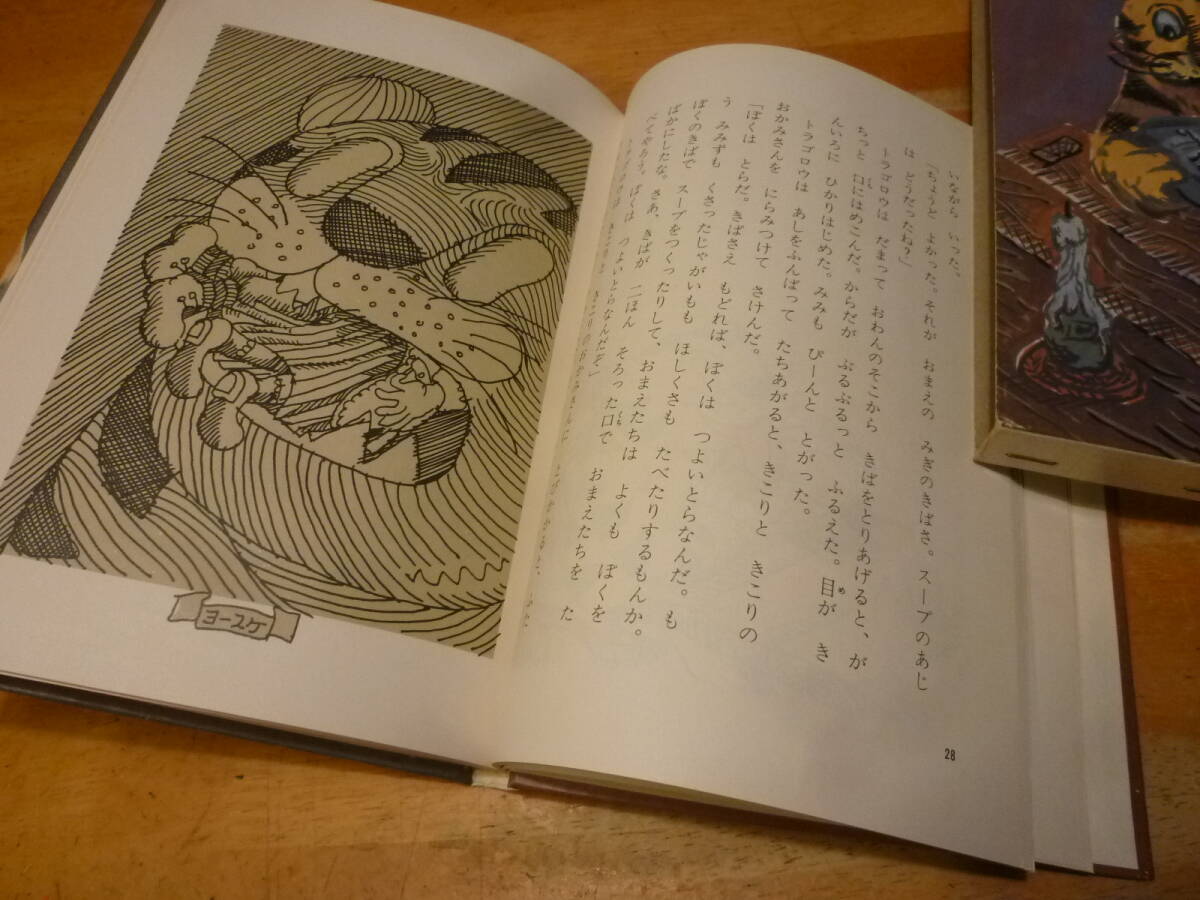 いながら いった。
「ちょうど よかった。それが おまえの みぎのきばさ。スープのあじ
は どうだったね?」
トラゴロウは だまって おわんのそこから きばをとりあげると、が
ちっと 口にはめこんだ。からだが ぶるぶるっと ふるえた。目が き
んいろに ひかりはじめた。みみも ぴーんと とがった。
トラゴロウは あしをふんばって たちあがると、きこりと きこりの
おかみさんを にらみつけて さけんだ。
「ぼくは とらだ。きばさえ もどれば、ぼくは つよいとらなんだ。も
う みみずも くさったじゃがいもも ほしくさも たべたりするもんか。
ぼくのきばで スープをつくったりして、おまえたちは よくも ぼくを
ばかにしたな。さあ、きばが 二ほん そろった口で おまえたちを た
べてやろう。ぼくは つよいとらなんだぞ」
トラゴロウは きこりと きこりのおかみさんに
28
ヨースケ